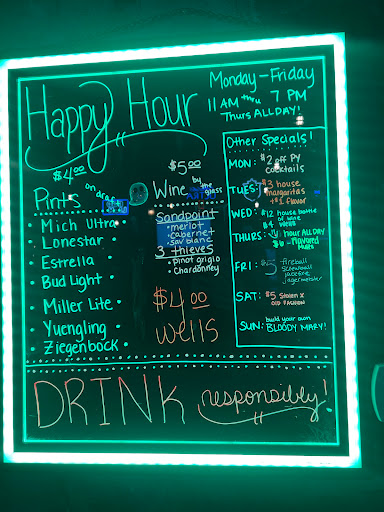 Happy Hour
Monday - Friday
11 AM thru 7 PM
Thurs ALL DAY!
$4.00
Pints on draft
Mich Ultra
Lonestar
Estrella
Bud Light
Miller Lite
Yuengling
Ziegenbock
$5.00
Wine by the glass
Sandpoint
• merlot
• cabernet
• sav blanc
3 thieves
• pinot grigio
• Chardonney
$4.00
wells
Other Specials!
MON: $2 off PY
cocktails
TUES: $3 house
margaritas
+$1 flavor
WED: $12 house bottle
of wine
$4 wells
THURS: hour ALL DAY
$6 - flavored
FRI: $5 fireball
jameson
jagermeister
SAT: $5 Stolen X
OLD FASHION
SUN: build your own
BLOODY MARY!
DRINK responsibly!